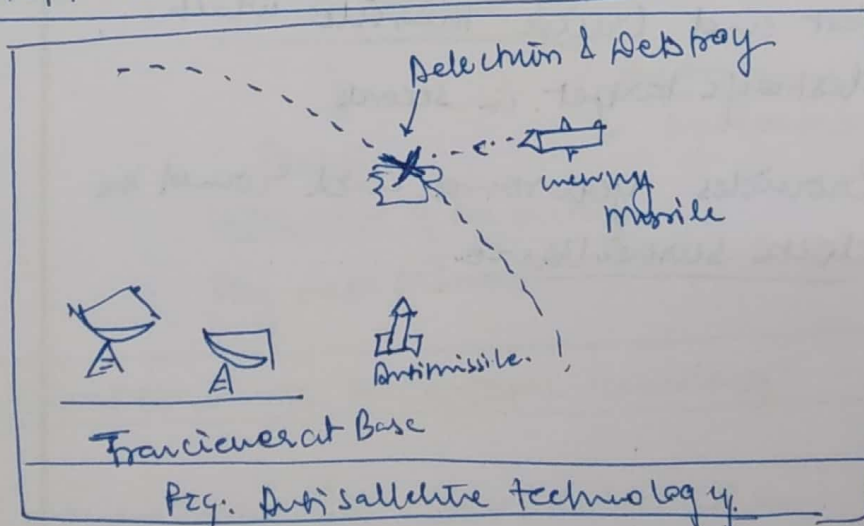 Detection & Destroy
enemy
missile
Antimissile.
at Base
Fig: Antisatellite technology.